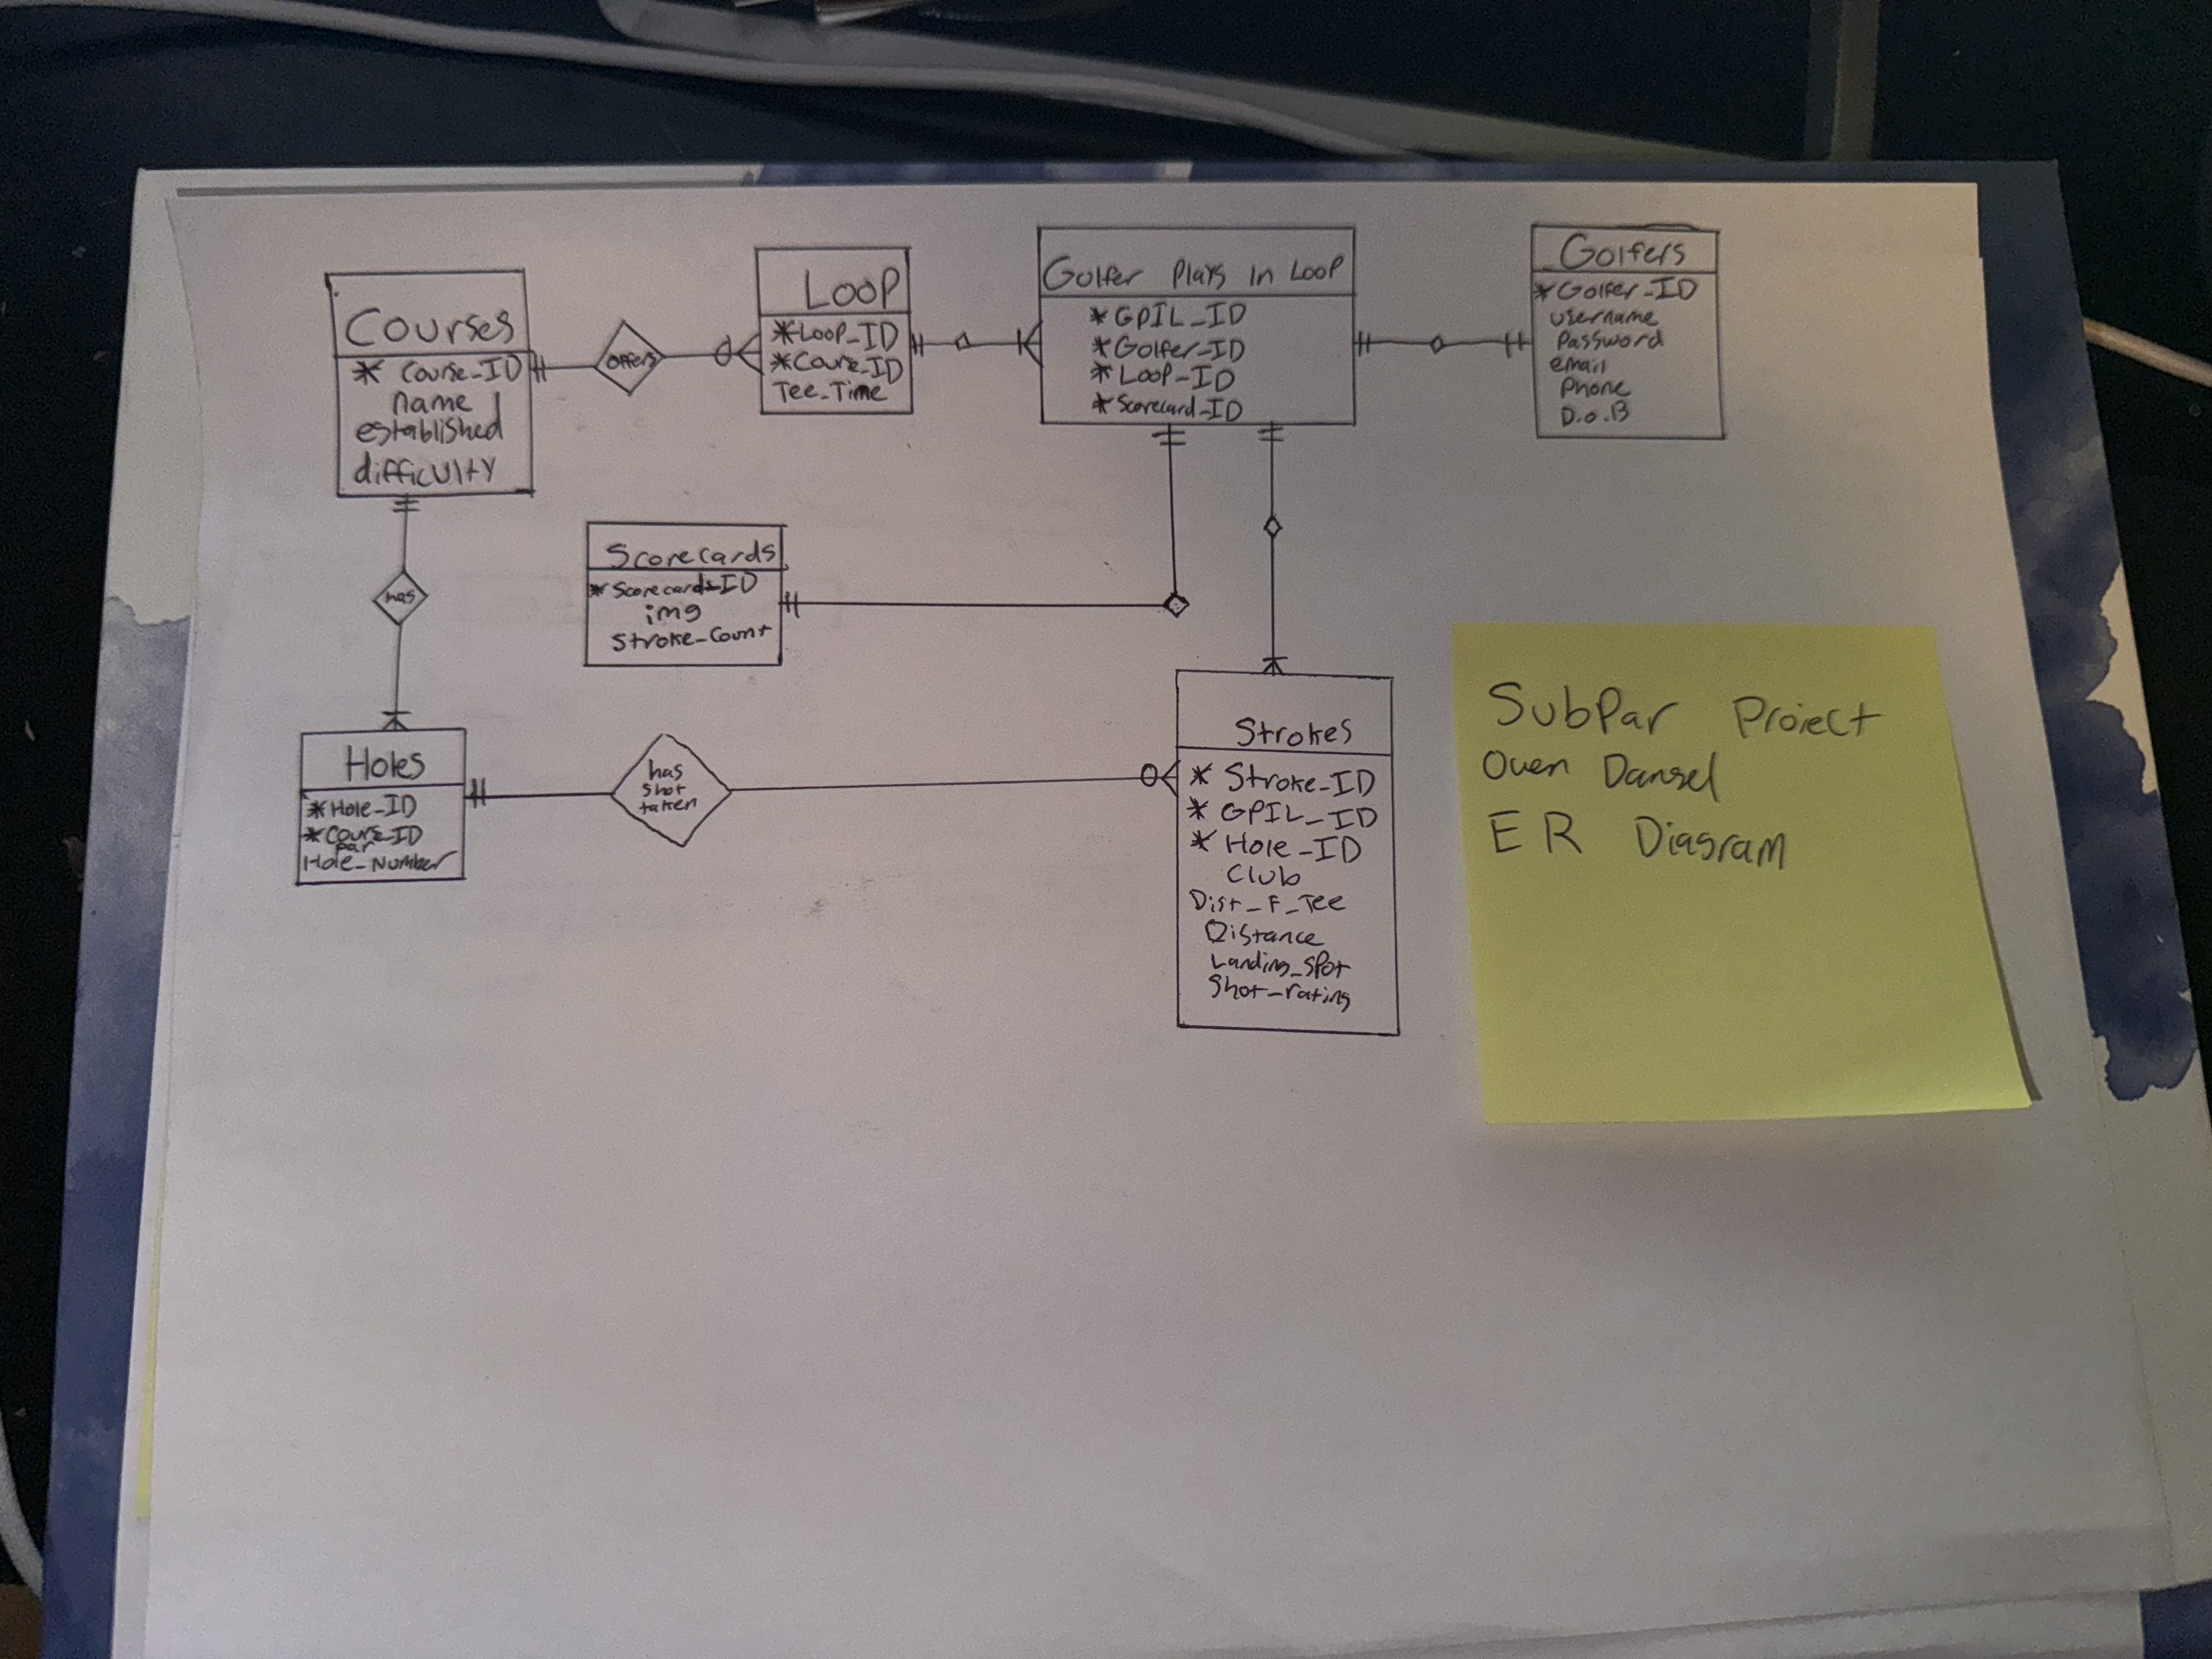 Courses
* Course_ID
name
established
difficulty
offers
Loop
*Loop_ID
*Course_ID
Tee_Time
Golfer Plays In Loop
*GPIL_ID
*Golfer_ID
*Loop_ID
*Scorecard_ID
Golfers
*Golfer_ID
username
Password
email
Phone
D.o.B
has
Scorecards
*Scorecards_ID
img
Stroke_Count
Holes
*Hole_ID
*Course_ID
par
Hole_Number
has
shot
taken
Strokes
* Stroke_ID
* GPIL_ID
* Hole_ID
Club
Dist_F_Tee
Distance
Landing_Spot
Shot_rating
SubPar Project
Owen
ER Diagram